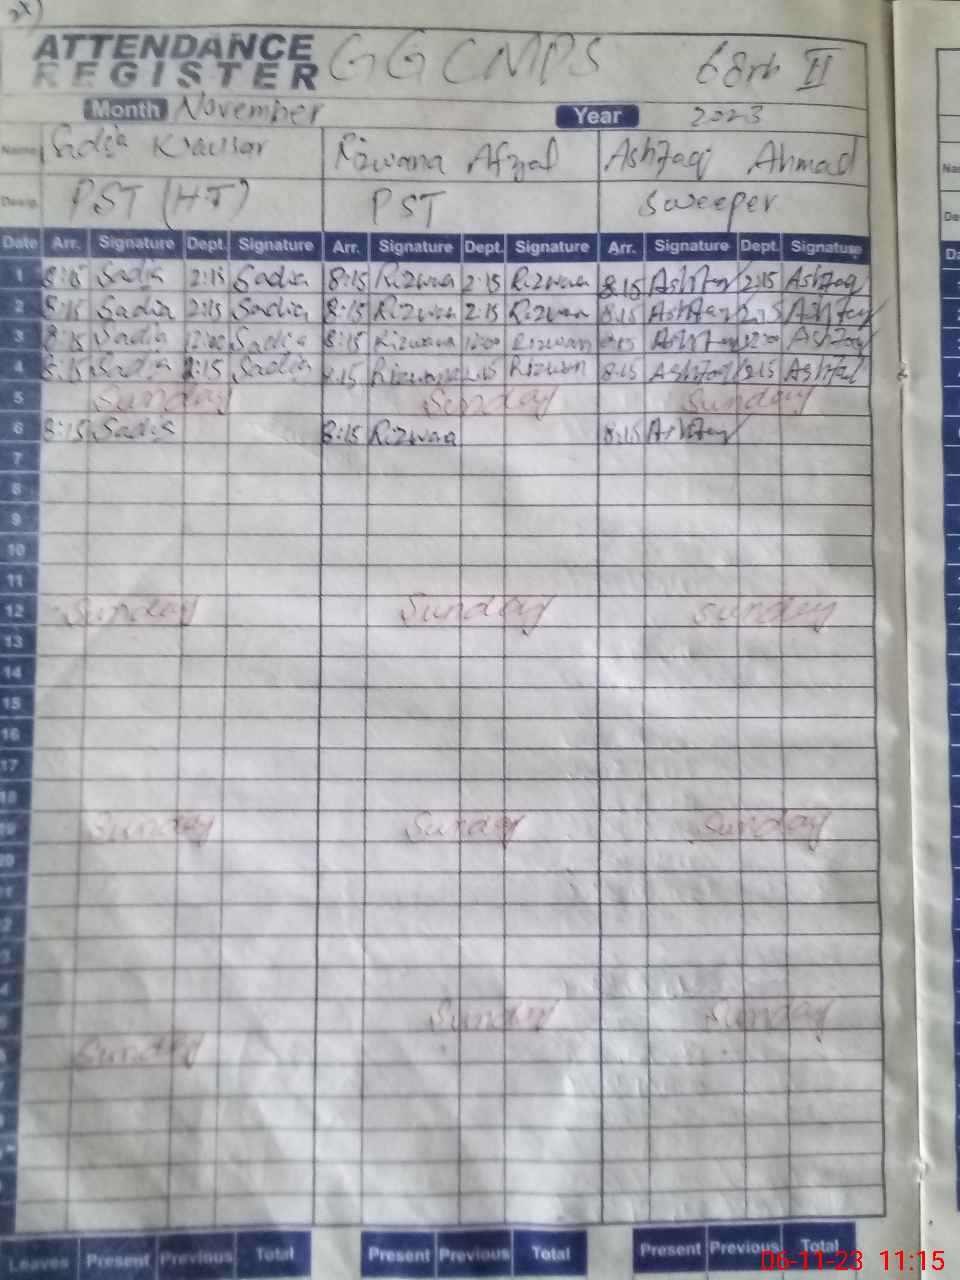 ATTENDANCE REGISTER GGCMPS 68rb II
Month November Year 2023
Name Sadia Kausar Rizwana Afzal Ashfaq Ahmad
Desig. PST (HT) PST Sweeper
Date Arr. Signature Dept. Signature Arr. Signature Dept. Signature Arr. Signature Dept. Signature
1 8:15 Sadia 2:15 Sadia 8:15 Rizwana 2:15 Rizwana 8:15 Ashfaq 2:15 Ashfaq
2 8:15 Sadia 2:15 Sadia 8:15 Rizwana 2:15 Rizwana 8:15 Ashfaq 2:15 Ashfaq
3 8:15 Sadia 12:00 Sadia 8:15 Rizwana 12:00 Rizwana 8:15 Ashfaq 12:00 Ashfaq
4 8:15 Sadia 2:15 Sadia 8:15 Rizwana 2:15 Rizwan 8:15 Ashfaq 2:15 Ashfaq
5 Sunday Sunday Sunday
6 8:15 Sadia 8:15 Rizwana 8:15 Ashfaq
7
8
9
10
11
12 Sunday Sunday Sunday
13
14
15
16
17
18
19 Sunday Sunday Sunday
20
Sunday Sunday
Sunday
Leaves Present Previous Total Present Previous Total Present Previous Total
06-11-23 11:15